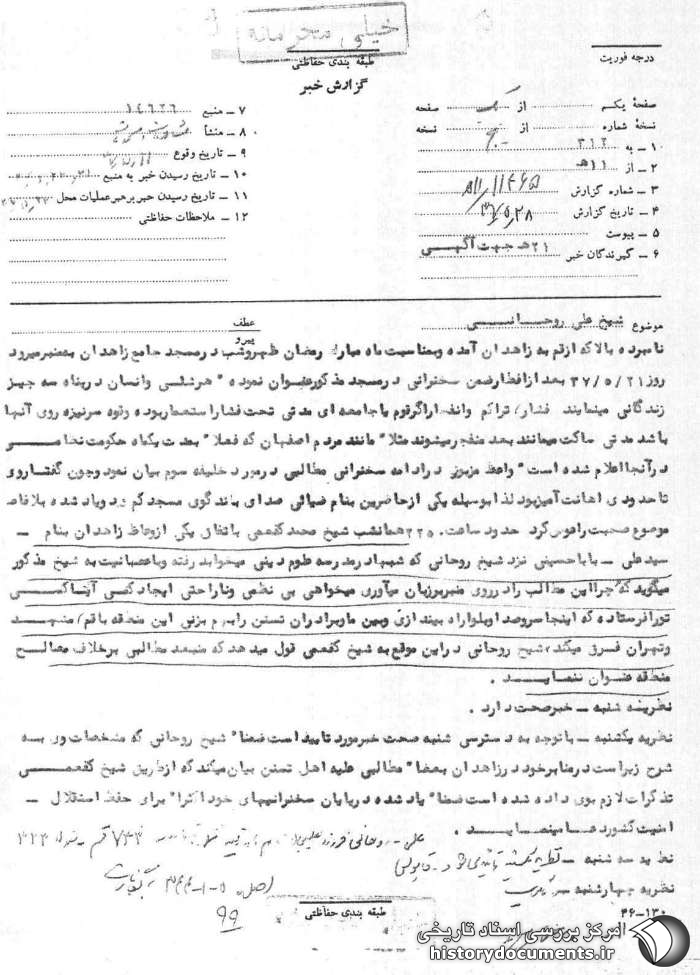 خیلی محرمانه
درجه فوریت
طبقه بندی حفاظتی
گزارش خبر
صفحهٔ یکم از یک صفحه
نسخهٔ شماره از نسخه
۱ ـ به ۳۱۲
۲ ـ از ۱۱هـ
۳ ـ شماره گزارش
۴ ـ تاریخ گزارش ۳۷/۵/۲۸
۵ ـ پیوست
۶ ـ گیرندگان خبر ۲۱هـ جهت آگهی
۷ ـ منبع ۱۴۶۲۶
۸ ـ منشأ
۹ ـ تاریخ وقوع
۱۰ ـ تاریخ رسیدن خبر به منبع
۱۱ ـ تاریخ رسیدن خبر برهبر عملیات محل
۱۲ ـ ملاحظات حفاظتی
موضوع شیخ علی روحانی
عطف
پیرو
نامبرده بالا که از قم به زاهدان آمده و بمناسبت ماه مبارک رمضان ظهر و شب در مسجد جامع زاهدان به منبر میرود
روز ۳۷/۵/۲۱ بعد از افطار ضمن سخنرانی در مسجد مذکور عنوان نموده " هر شئی و انسان در پناه سه چیز
زندگانی مینمایند فشار، تراکم وانفجار اگر قوم یا جامعه ای مدتی تحت فشار استعمار بوده و توه سرنیزه روی آنها
باشد مدتی ساکت میمانند بعد منفجر میشوند مثلا" مانند مردم اصفهان که فعلا" بمدت یکماه حکومت نظامی
در آنجا اعلام شده است " واعظ مزبور در ادامه سخنرانی مطالبی در مورد خلیفه سوم بیان نمود و چون گفتار وی
تا حدودی اهانت آمیز بود لذا بوسیله یکی از حاضرین بنام ضیائی صدای بلندگوی مسجد کم و یاد شده بلافاصله
موضوع صحبت را عوض کرد حدود ساعت ۲۳۵ همانشب شیخ محمد کفعمی باتفاق یکی از وعاظ زاهدان بنام ـ
سیدعلی ـ باباحسینی نزد شیخ روحانی که شبها در مدرسه علوم دینی میخوابد رفته و با عصبانیت به شیخ مذکور
میگوید که چرا این مطالب را در روی منبر بر زبان میآوری میخواهی بی نظمی و ناراحتی ایجاد کنی آیا کسی
تو را فرستاده که اینجا سر و صدا و بلوا راه بیندازی و بین ما و برادران تسنن را بهم بزنی این منطقه با قم، مشهد
و تهران فرق میکند، شیخ روحانی در این موقع به شیخ کفعمی قول میدهد که منبعد مطالبی بر خلاف مصالح
منطقه عنوان ننماید .
نظریه شنبه ـ خبر صحت دارد .
نظریه یکشنبه ـ با توجه به دسترسی شنبه صحت خبر مورد تایید است ضمنا" شیخ روحانی که مشخصات وی به
شرح زیر است در منابر خود در زاهدان بعضا" مطالبی علیه اهل تسنن بیان میکند که از طریق شیخ کفعمی
تذکرات لازم بوی داده شده است ضمنا" یاد شده در پایان سخنرانیهای خود اکثرا" برای حفظ استقلال ـ
امنیت کشور دعا مینماید .
علی ـ روحانی فرزند
نظریه سه شنبه ـ نظریه یکشنبه تأئید میشود
نظریه چهارشنبه
طبقه بندی حفاظتی
۳۶-۱۳۰
۹۹
مرکز بررسی اسناد تاریخی
historydocuments.ir